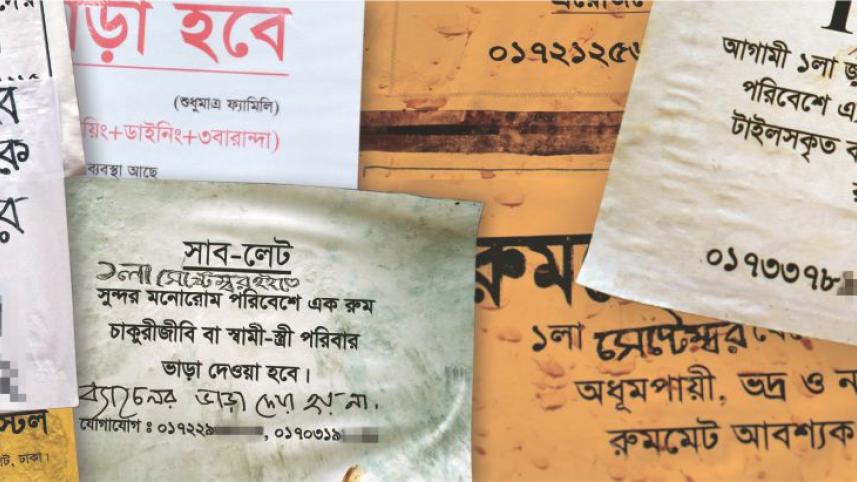 ড়া হবে
(শুধুমাত্র ফ্যামিলি)
য়িং+ডাইনিং+৩বারান্দা)
ব্যবস্থা আছে
০১৭২১২৫৬
আগামী ১লা
পরিবেশে
টাইলসকৃত
০১৭৩৩৭৮
সাব-লেট
১লা সেপ্টেম্বর হইতে
সুন্দর মনোরোম পরিবেশে এক রুম
চাকুরীজীবি বা স্বামী-স্ত্রী পরিবার
ভাড়া দেওয়া হবে।
ব্যাচেলর ভাড়া দেয়া হয় না।
যোগাযোগ : ০১৭২২৯ , ০১৭০৩১৯
রুম
১লা সেপ্টেম্বর
অধূমপায়ী, ভদ্র ও
রুমমেট আবশ্যক
স্টেল
ঢাকা।